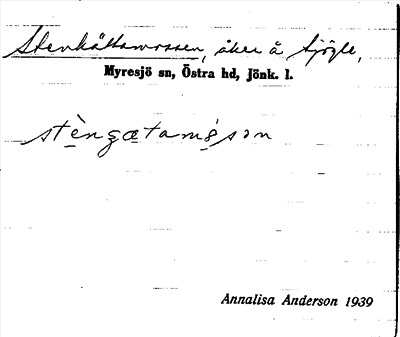 Stenkättamossen, åker å Sjögle,
Myresjö sn, Östra hd, Jönk. l.
stèngætamósən
Annalisa Anderson 1939